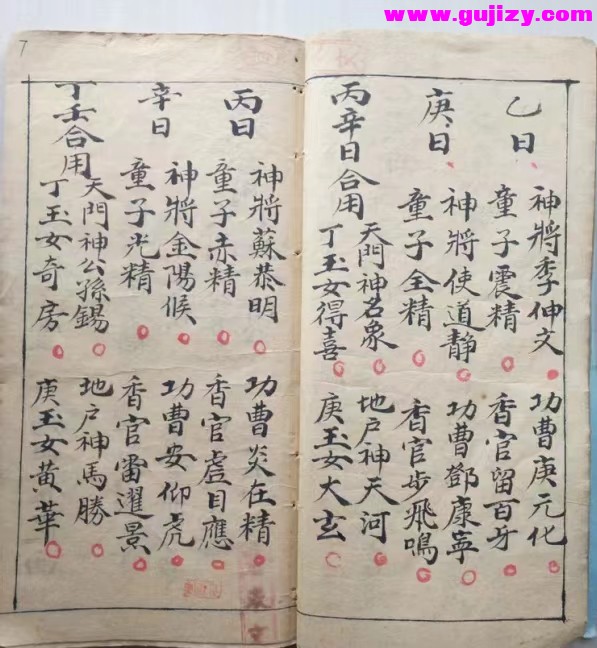 www.gujizy.com
乙日
神將季仲文 功曹庚元化
童子震精 香官留百牙
庚日
神將使道靜 功曹鄧康寧
童子全精 香官步飛鳴
丙辛日合用
天門神名象 地户神天河
丁玉女得喜 庚玉女大玄
7
丙日
神將蘇恭明 功曹炎在精
童子赤精 香官虛目應
辛日
神將金陽候 功曹安仰虎
童子光精 香官雷躍景
丁壬合用
天門神公孫錫 地户神馬勝
丁玉女奇房 庚玉女黃華